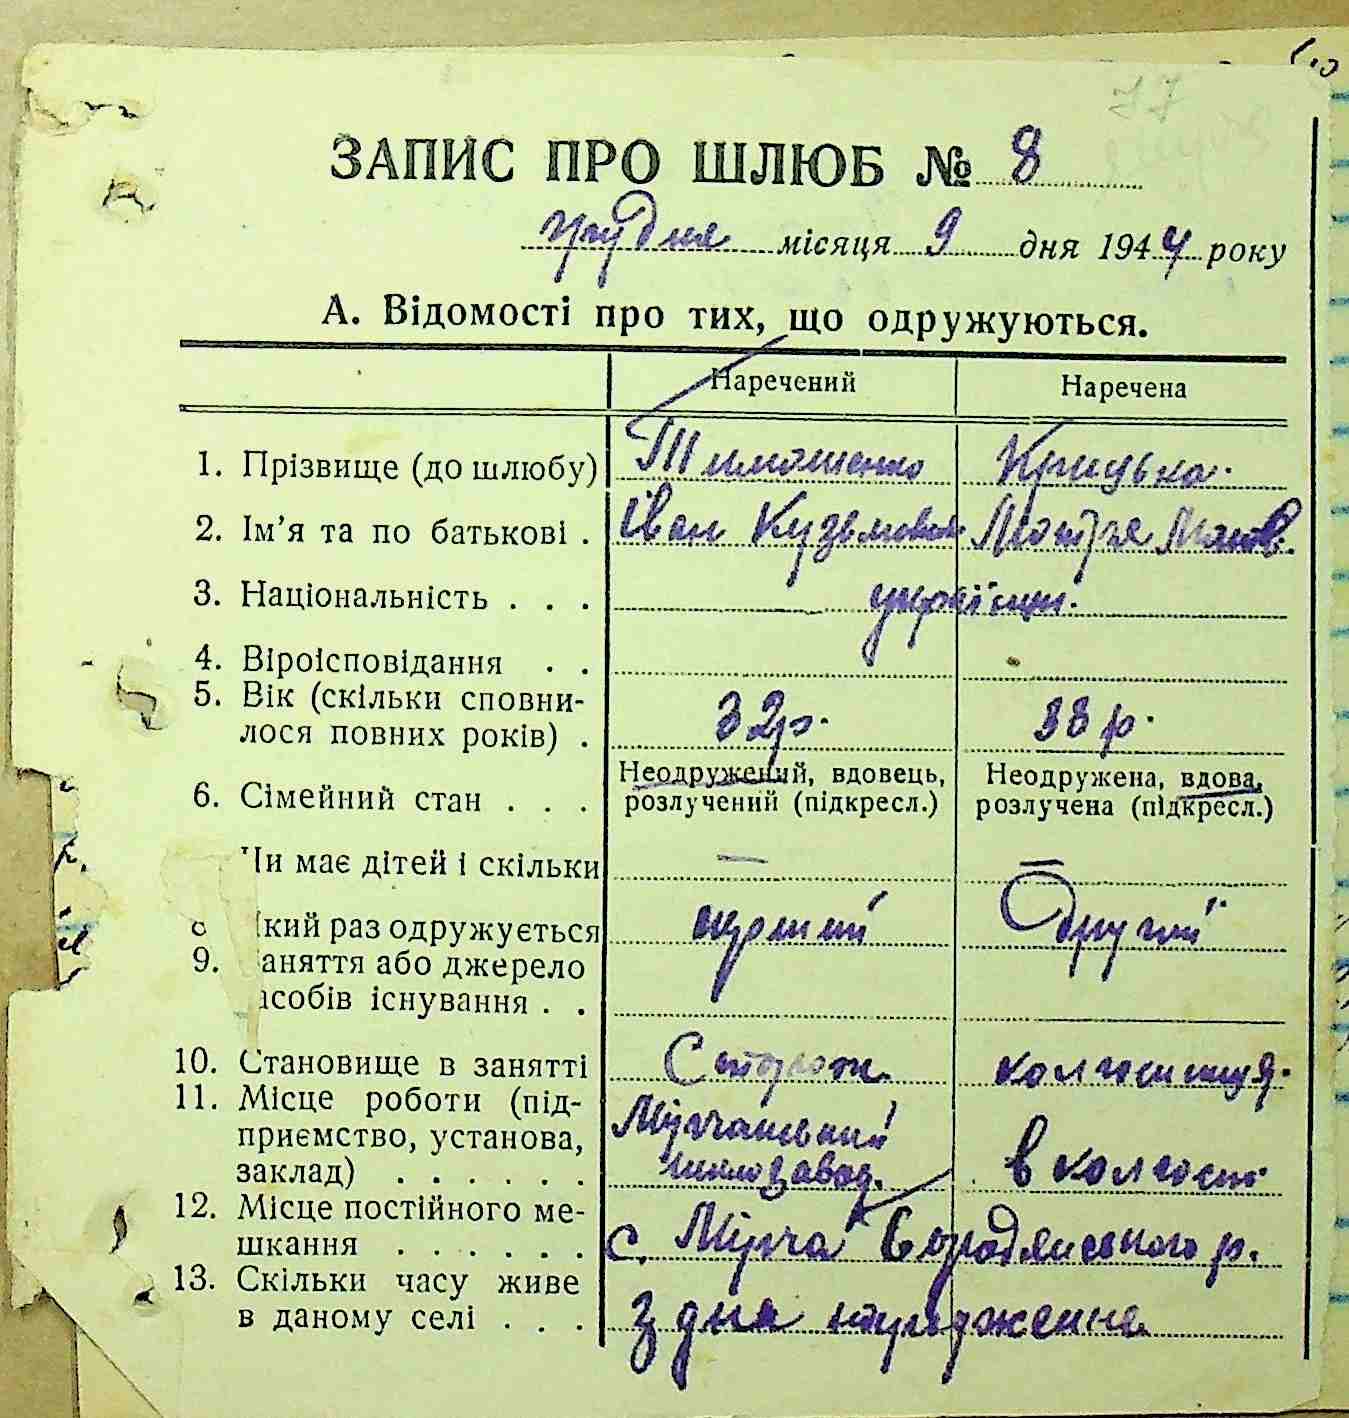 77
ЗАПИС ПРО ШЛЮБ № 8
грудня місяця 9 дня 1944 року
А. Відомості про тих, що одружуються.
Наречений Наречена
1. Прізвище (до шлюбу) Тимошенко Крицька.
2. Ім'я та по батькові . Іван Кузьмович Мотря Матв.
3. Національність . . . українци.
4. Віроісповідання . .
5. Вік (скільки сповни-
лося повних років) . 32 р. 38 р.
Неодружений, вдовець, Неодружена, вдова,
6. Сімейний стан . . . розлучений (підкресл.) розлучена (підкресл.)
Чи має дітей і скільки — —
кий раз одружується перший Другий
9. аняття або джерело
асобів існування . .
10. Становище в занятті Сторож колгоспниця.
11. Місце роботи (під- Мірчанський
приємство, установа, завод. в колгоспі
заклад) . . . . . .
12. Місце постійного ме-
шкання . . . . . . с. Мірча Бородянського р.
13. Скільки часу живе
в даному селі . . . з дня народження